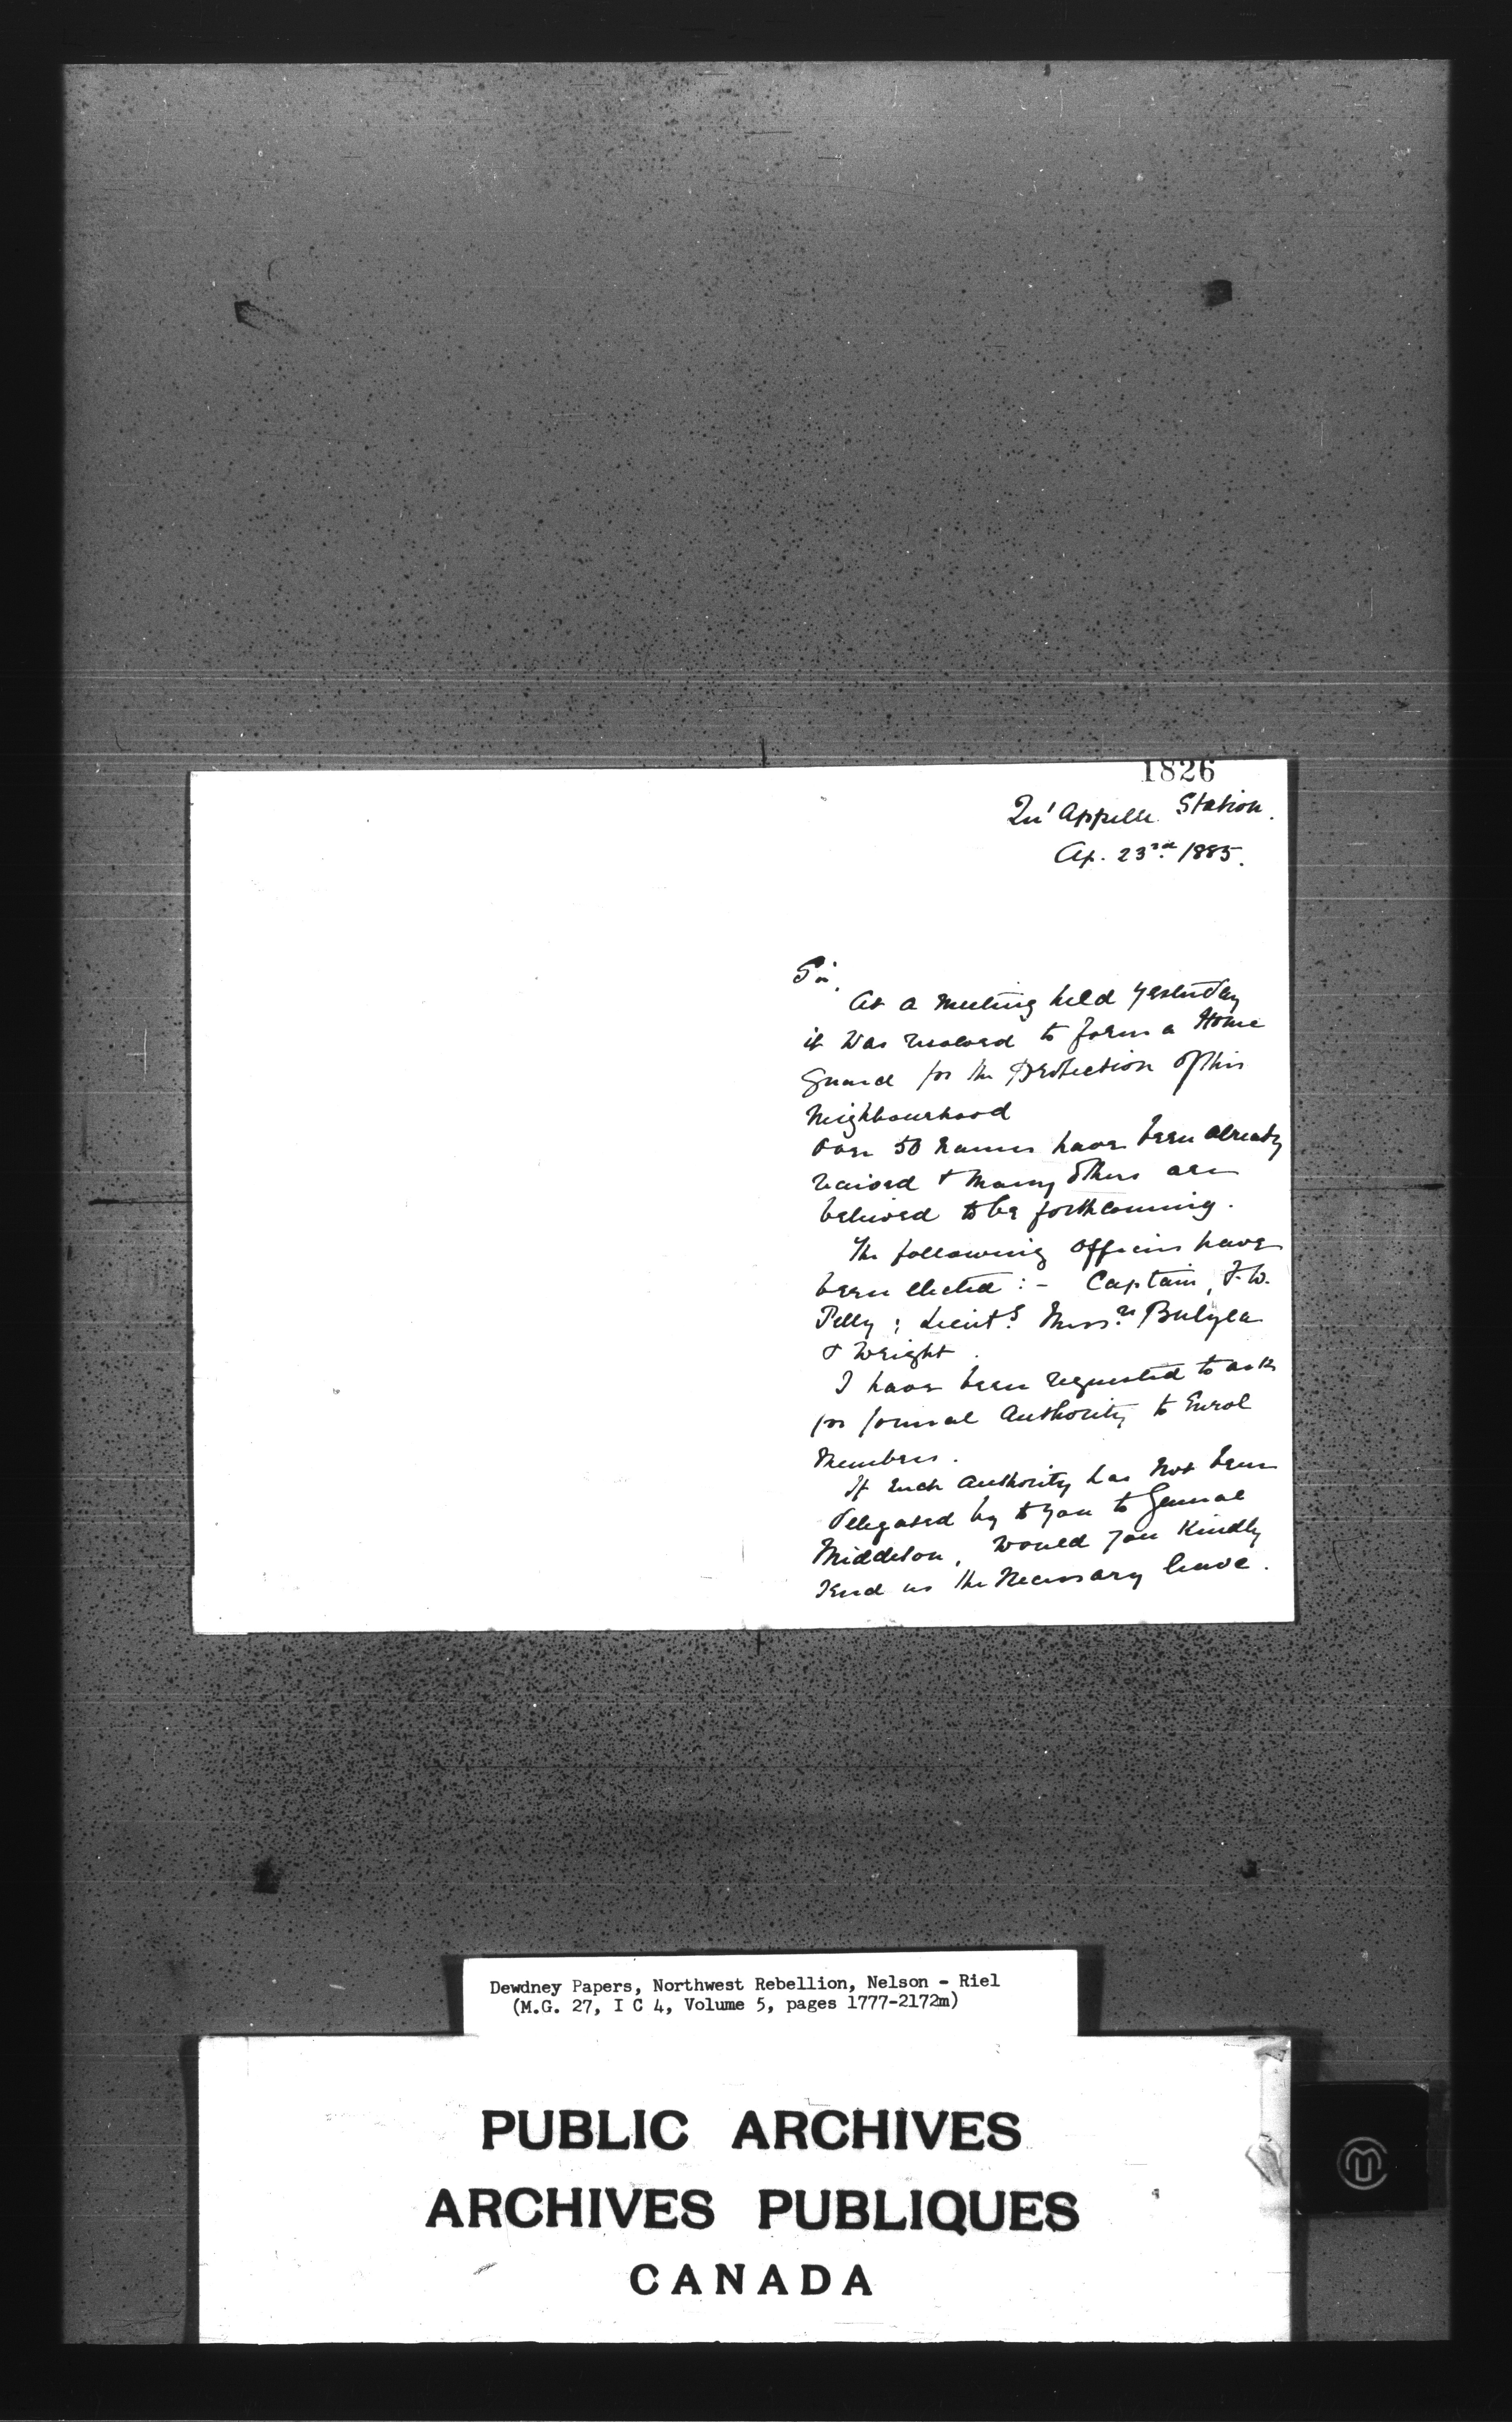 1826
Qu'Appelle Station.
Ap. 23rd 1885.
Sir,
At a meeting held yesterday
it was resolved to form a Home
Guard for the Protection of this
Neighbourhood
Over 50 names have been already
raised & many others are
believed to be forthcoming.
The following officers have
been elected :- Captain, F. W.
Pelly ; Lieuts. Messrs Bulyea
& Wright.
I have been requested to ask
for formal Authority to Enrol
Members.
If such Authority has not been
delegated by to you to General
Middleton, would you Kindly
send us the Necessary leave.
Dewdney Papers, Northwest Rebellion, Nelson - Riel
(M.G. 27, I C 4, Volume 5, pages 1777-2172m)
PUBLIC ARCHIVES
ARCHIVES PUBLIQUES
CANADA